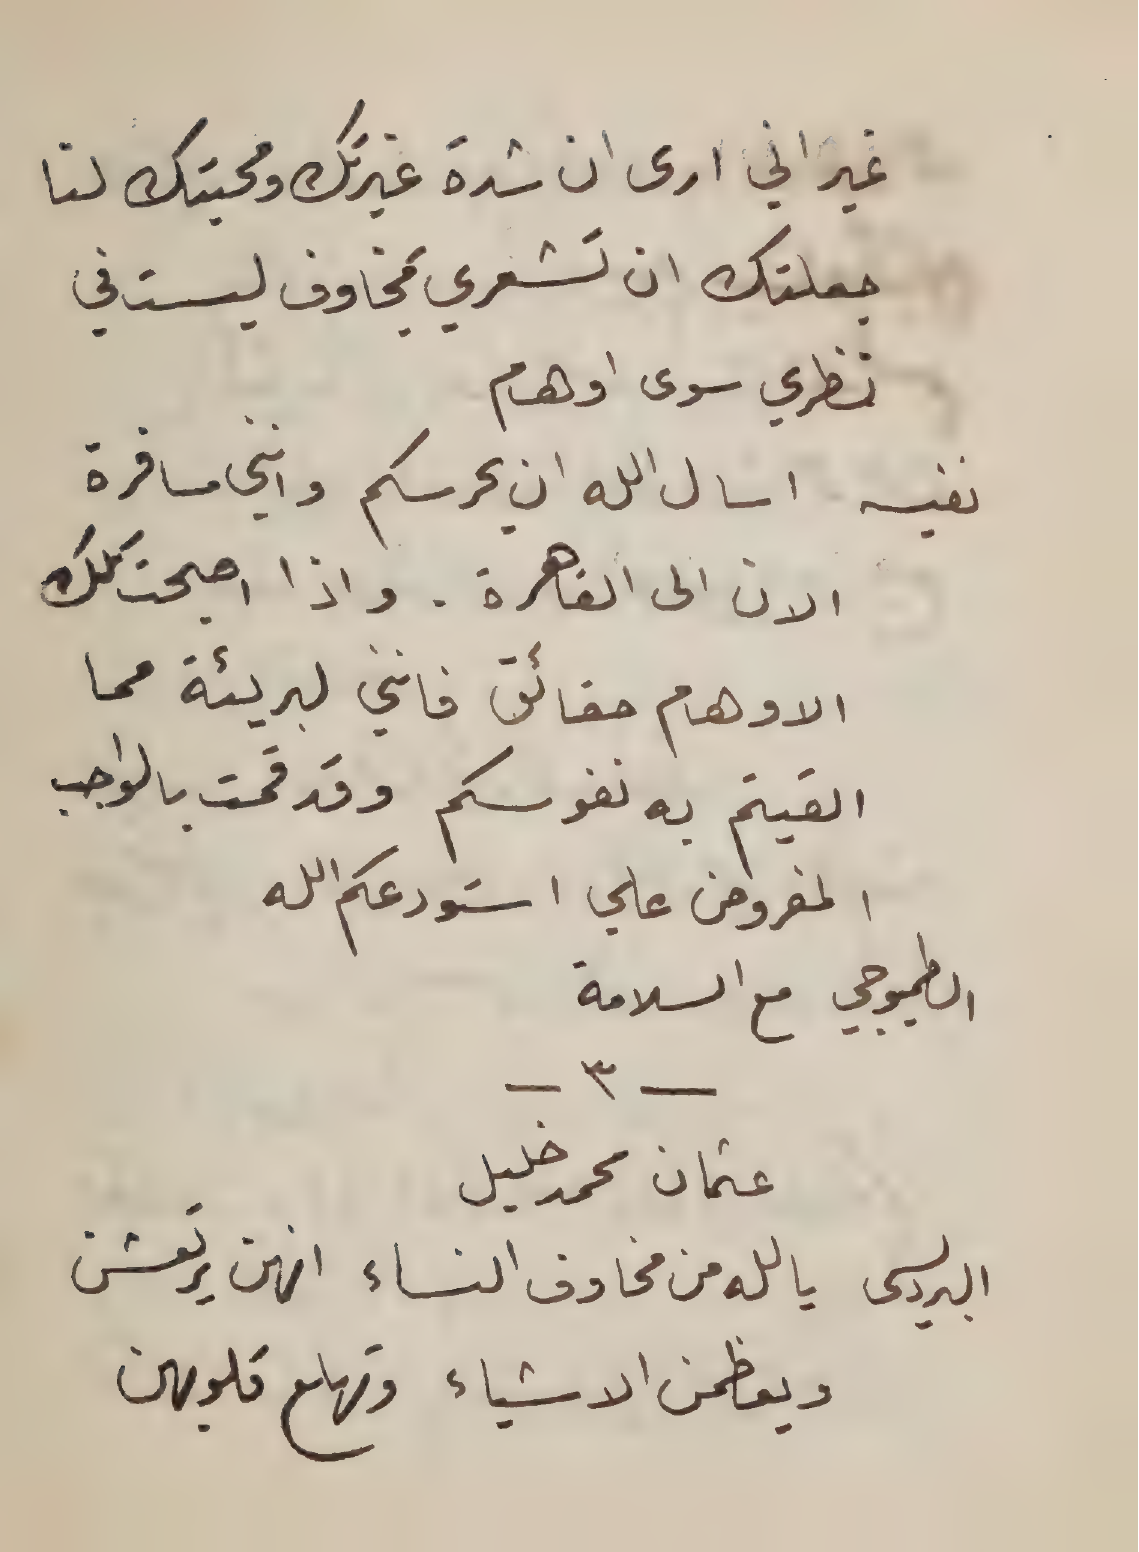 غير اني ارى ان شدة غيرتك ومحبتك لنا
جعلتك ان تشعري بمخاوف ليست في
نظري سوى اوهام
نفيسه - اسال الله ان يحرسكم وانني مسافرة
الان الى القاهرة . واذا اصبحت تلك
الاوهام حقائق فانني لبريئة مما
القيتم به نفوسكم وقد قمت بالواجب
المفروض علي استودعكم الله
الطمبوجي مع السلامة
— ٣ —
عثمان محمد خليل
البرديسى يالله من مخاوف النساء انهن يرتعشن
ويعظمن الاشياء وتهلع قلوبهن